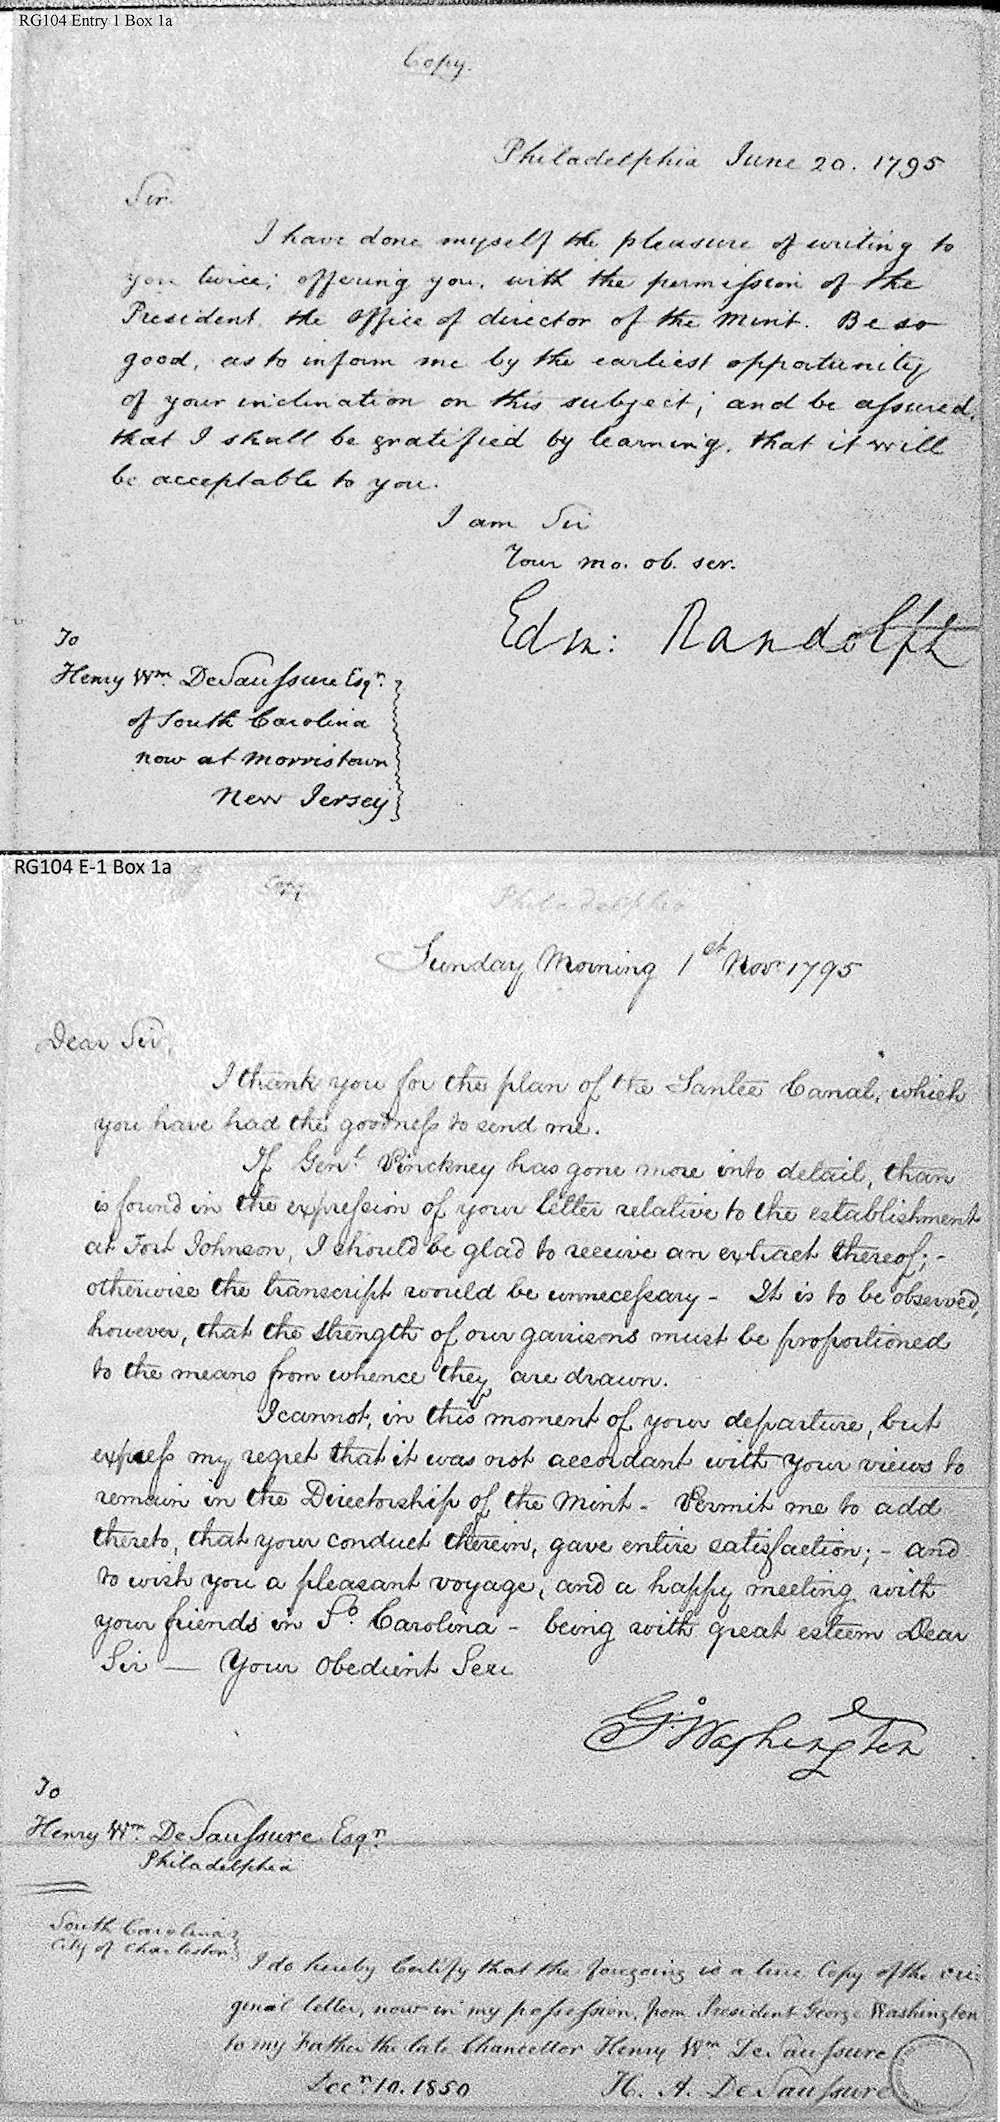 RG104 Entry 1 Box 1a
Copy.
Philadelphia June 20. 1795
Sir.
I have done myself the pleasure of writing to
you twice; offering you, with the permission of the
President the office of director of the Mint. Be so
good, as to inform me by the earliest opportunity
of your inclination on this subject; and be assured,
that I shall be gratified by learning, that it will
be acceptable to you.
I am Sir
Your mo. ob. ser.
Edm: Randolph
To
Henry Wm. DeSaussure Esqr.
of South Carolina
now at Morristown
New Jersey
RG104 E-1 Box 1a
Copy
Philadelphia
Sunday Morning 1st Novr 1795
Dear Sir,
I thank you for the plan of the Santee Canal, which
you have had the goodness to send me.
If Genl. Pinckney has gone more into detail, than
is found in the expression of your letter relative to the establishment
at Fort Johnson, I should be glad to receive an extract thereof; -
otherwise the transcript would be unnecessary - It is to be observed,
however, that the strength of our garrisons must be proportioned
to the means from whence they are drawn.
I cannot, in this moment of your departure, but
express my regret that it was not accordant with your views to
remain in the Directorship of the Mint - Permit me to add
thereto, that your conduct therein, gave entire satisfaction; - and
to wish you a pleasant voyage, and a happy meeting with
your friends in So. Carolina - being with great esteem Dear
Sir — Your Obedient Serv
Go. Washington
To
Henry Wm. DeSaussure Esqr
Philadelphia
South Carolina
City of Charleston
I do hereby Certify that the foregoing is a true Copy of the ori-
ginal letter, now in my possession, from President George Washington
to my Father the late Chancellor Henry Wm DeSaussure
Decr. 10. 1850
H. A. DeSaussure